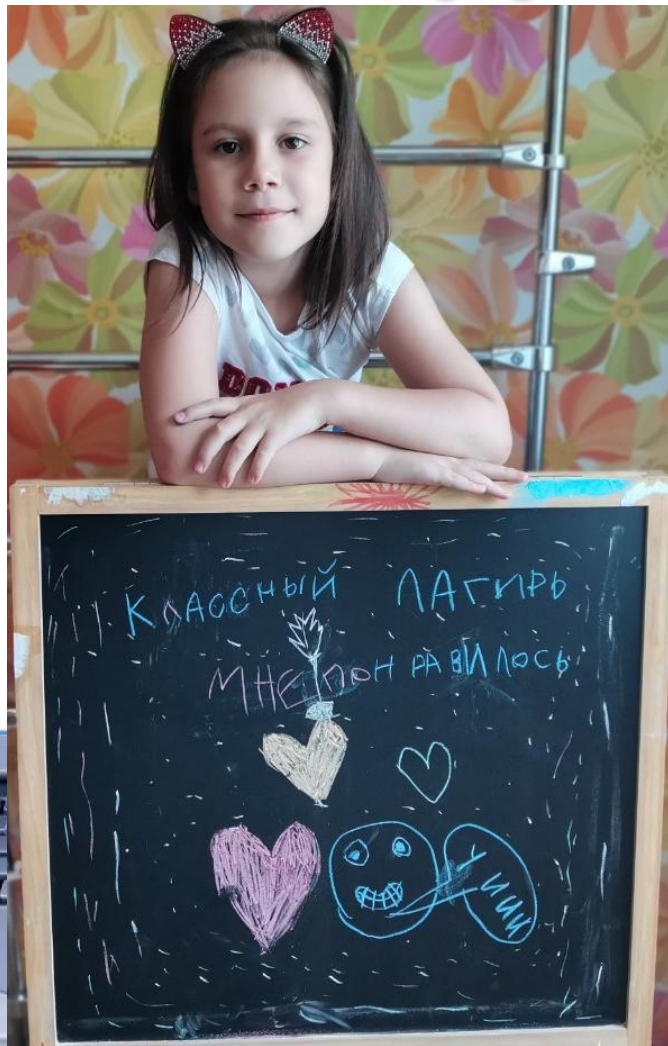 КЛАССНЫЙ ЛАГИРЬ
МНЕ ПОНРАВИЛОСЬ